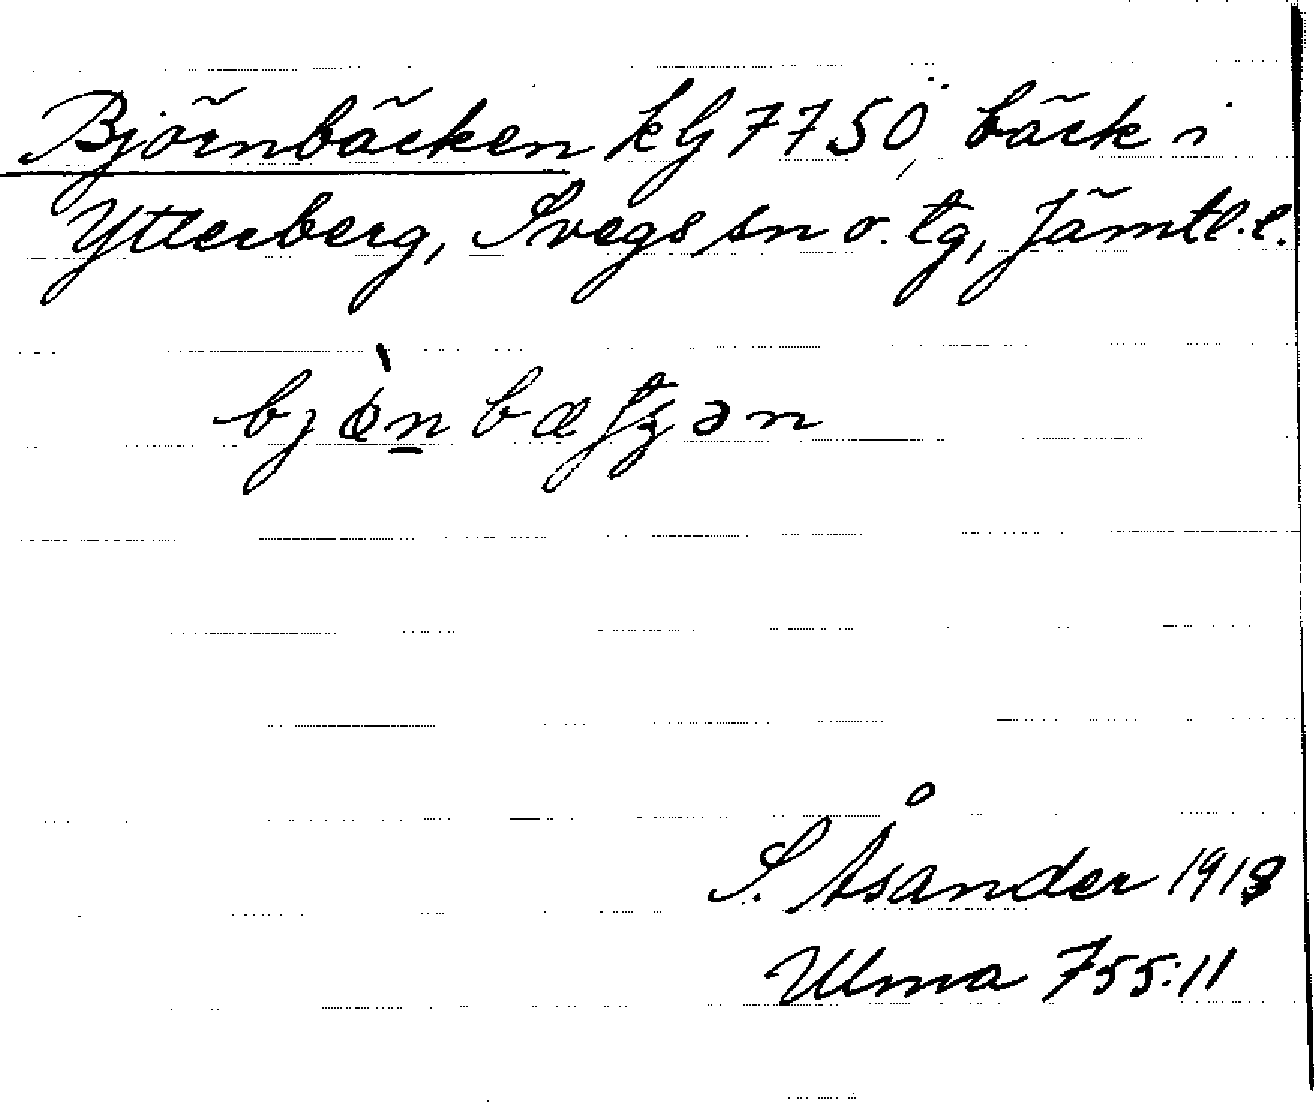 Björnbäcken kG 7750, bäck i
Ytterberg, Svegs sn o. tg, Jämtl.l.
S. Åsander 1918
Ulma 755:11